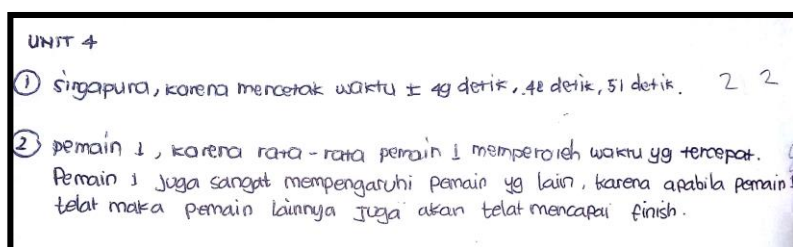 UNIT 4
① singapura, karena mencetak waktu ± 49 detik, 48 detik, 51 detik. 2 2
② pemain 1, karena rata-rata pemain 1 memperoleh waktu yg tercepat.
Pemain 1 juga sangat mempengaruhi pemain yg lain, karena apabila pemain 1
telat maka pemain lainnya juga akan telat mencapai finish.